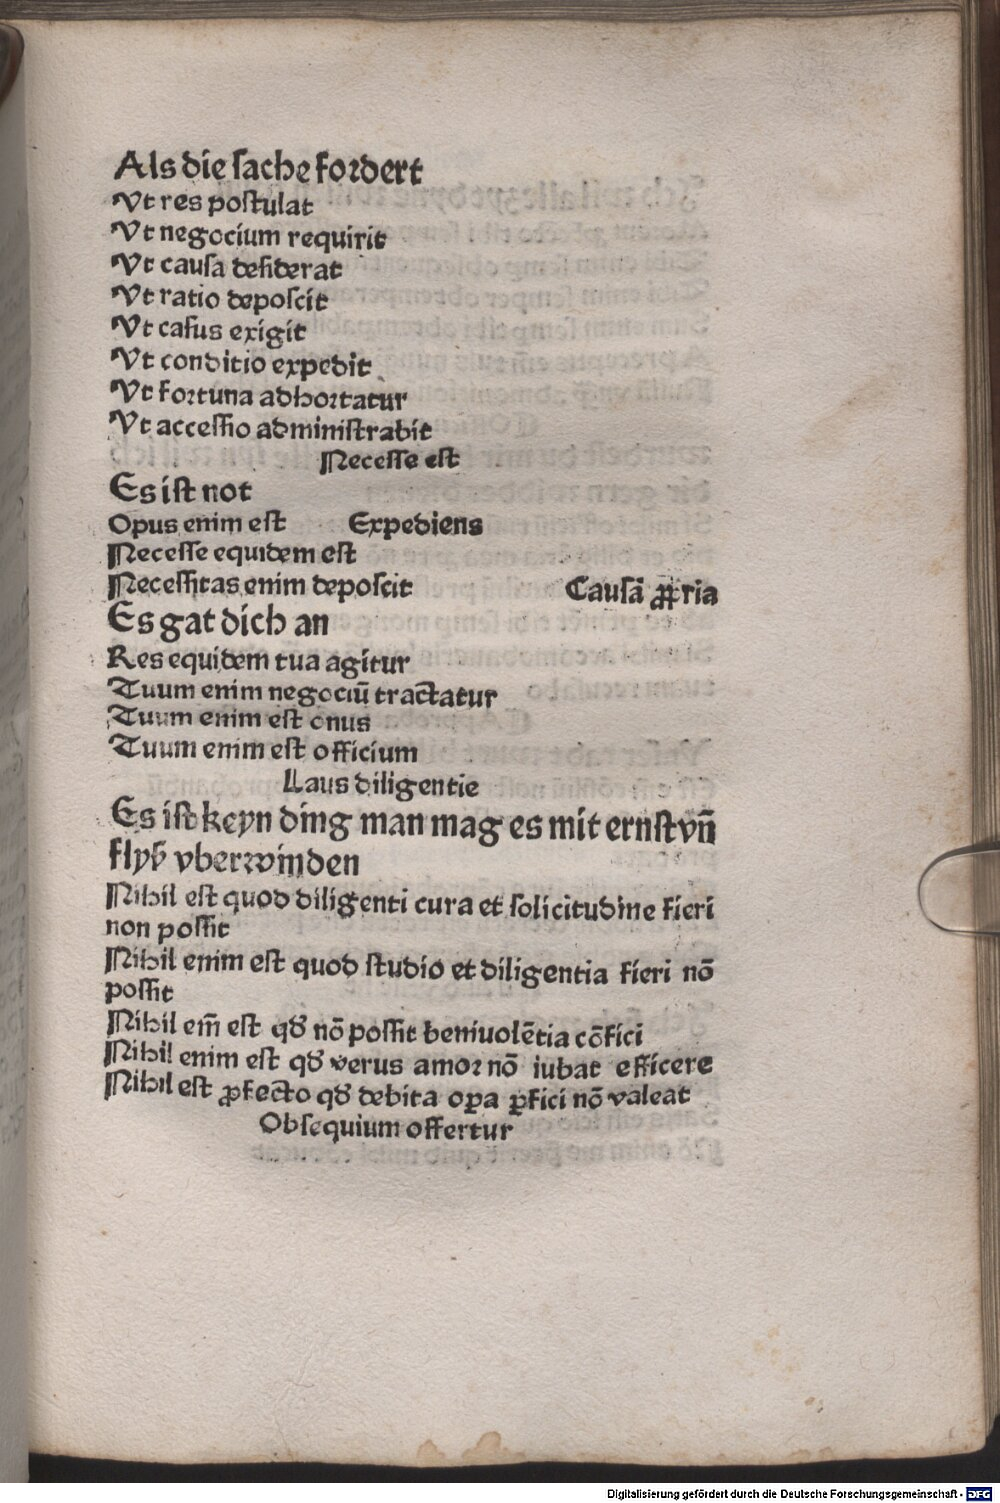 Als die sache fordert
Vt res postulat
Vt negocium requirit
Vt causa desiderat
Vt ratio deposcit
Vt casus exigit
Vt conditio expedit
Vt fortuna adhortatur
Vt accessio administrabit
Necesse est
Es ist not
Opus enim est Expediens
Necesse equidem est
Necessitas enim deposcit Causã ꝓpria
Es gat dich an
Res equidem tua agitur
Tuum enim negociũ tractatur
Tuum enim est onus
Tuum enim est officium
Laus diligentie
Es ist keyn ding man mag es mit ernst vñ
flyß vberwinden
Nihil est quod diligenti cura et solicitudine fieri
non possit
Nihil enim est quod studio et diligentia fieri nõ
possit
Nihil em̃ est qď nõ possit beniuolẽtia cõfici
Nihil enim est qď verus amor nõ iubat efficere
Nihil est ꝓfecto qď debita oꝑa ꝑfici nõ valeat
Obsequium offertur
Digitalisierung gefördert durch die Deutsche Forschungsgemeinschaft - DFG